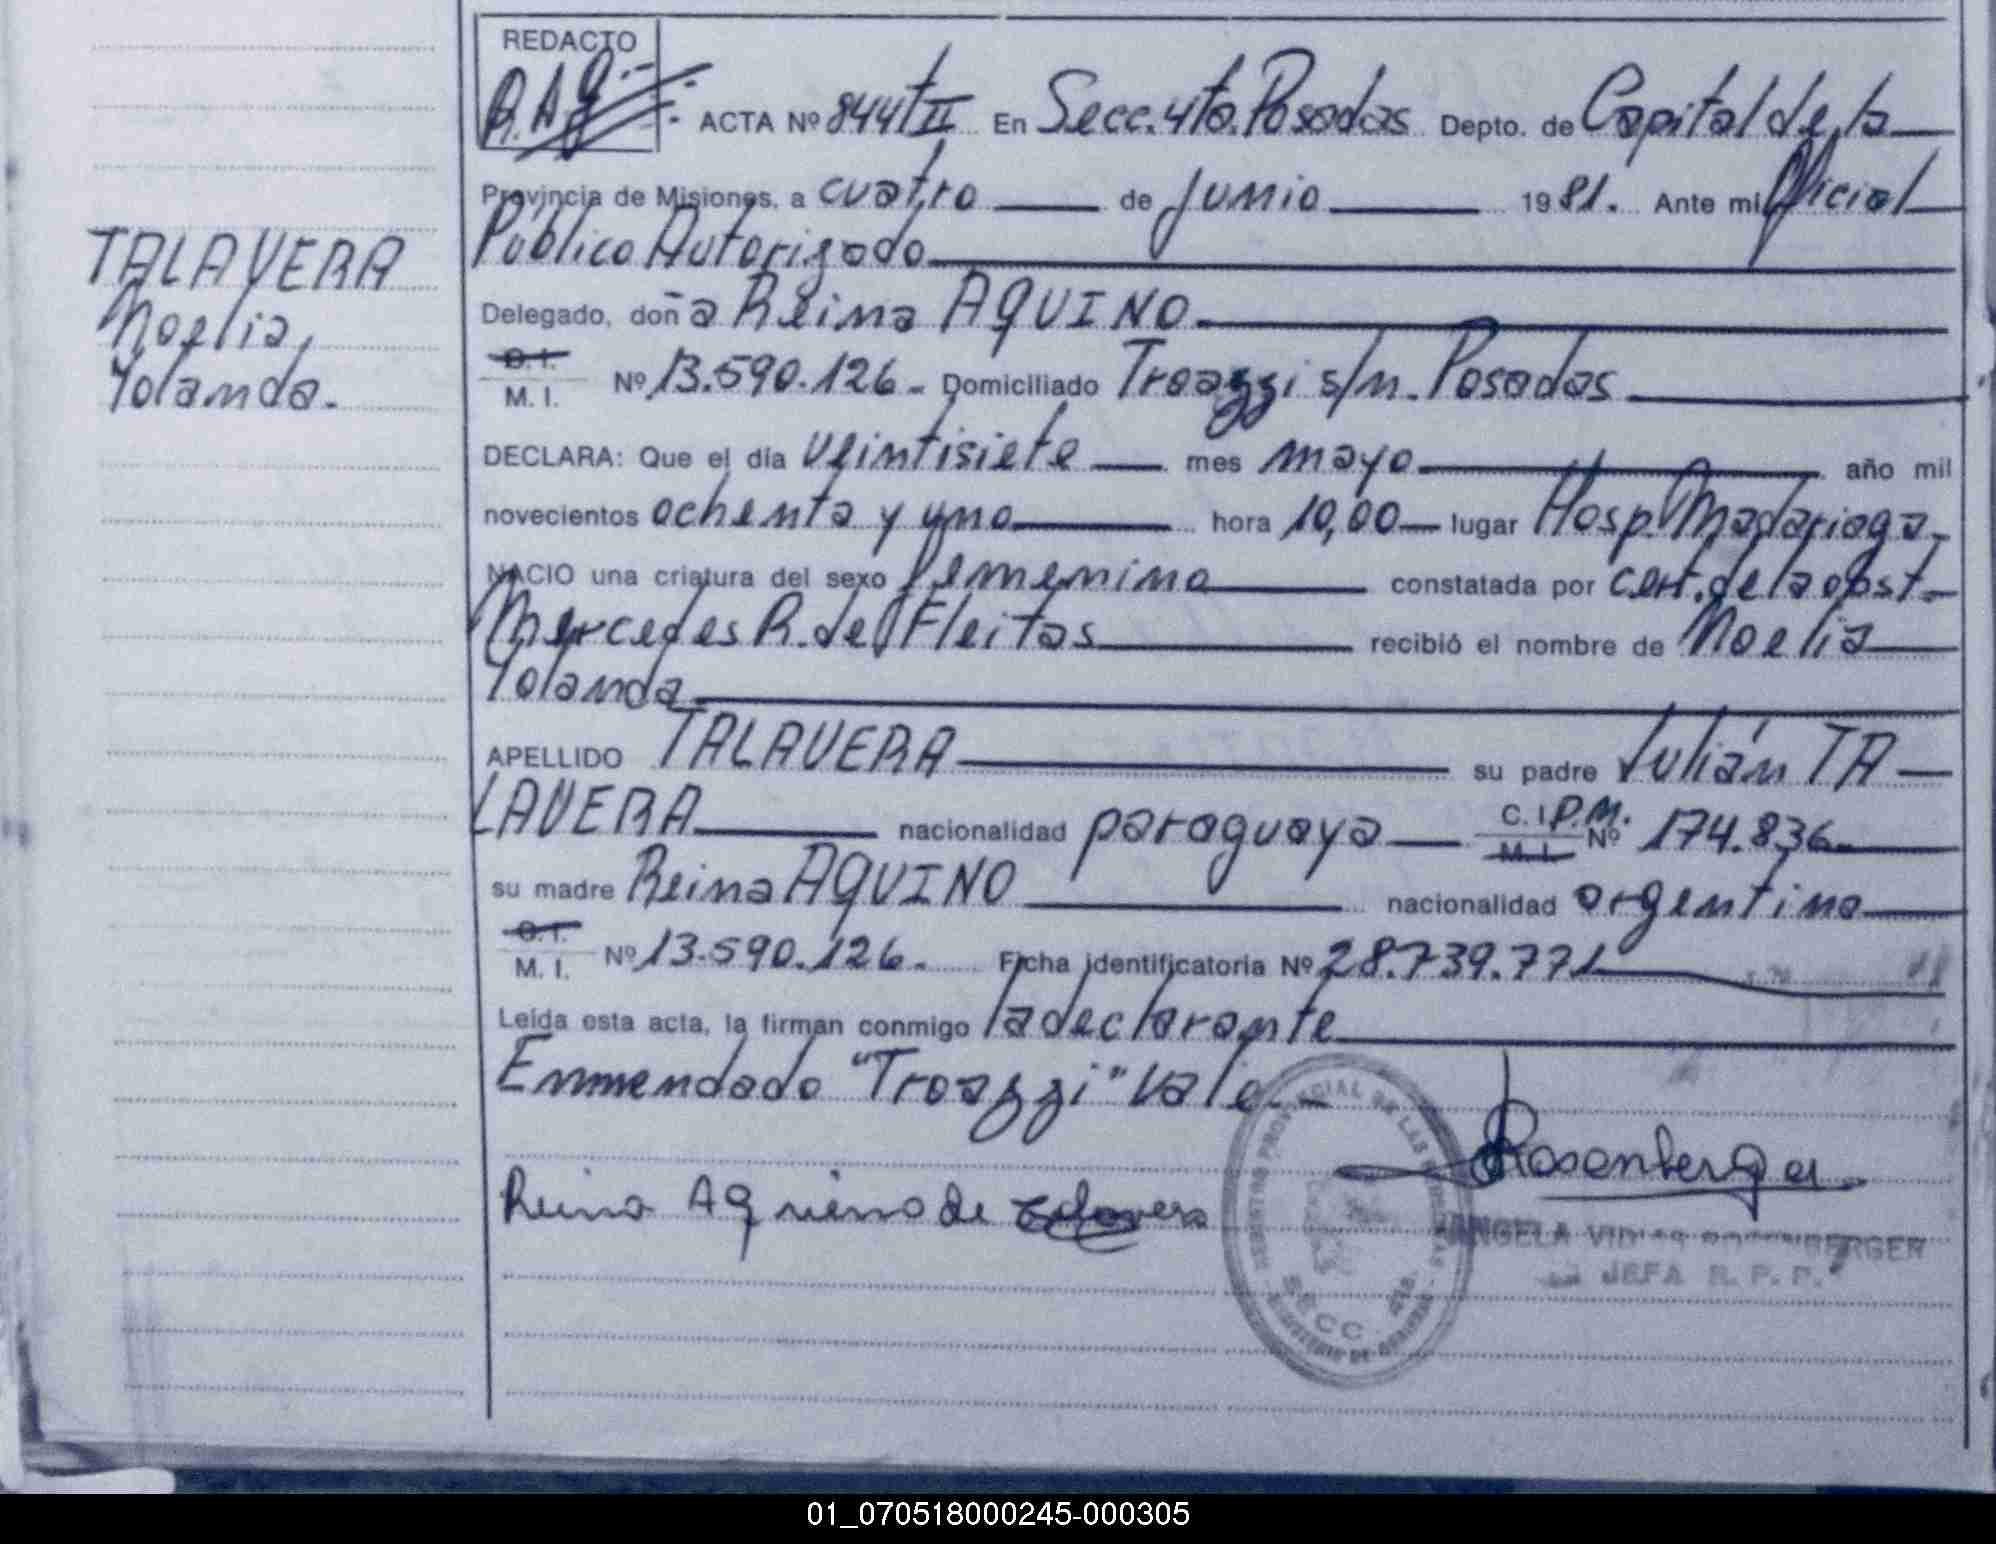 REDACTO
R.A.G.-
ACTA Nº 844 tII En Secc. 4ta. Posadas Depto. de Capital de la
Provincia de Misiones, a cuatro de Junio 1981. Ante mi Oficial
Público Autorizado
TALAVERA
Noelia,
Yolanda.-
Delegado, doña Reina AQUINO
C.I.
M. I. Nº 13.590.126.- Domiciliado Troazzi s/n. Posadas
DECLARA: Que el día veintisiete mes mayo año mil
novecientos ochenta y uno hora 10,00 lugar Hosp. Madariaga.-
NACIO una criatura del sexo femenino constatada por cert. de la obst.-
Mercedes R. de Fleitas recibió el nombre de Noelia
Yolanda
APELLIDO TALAVERA su padre Julián TA-
LAVERA nacionalidad paraguaya C. I. P.M. Nº 174.836
M. I.
su madre Reina AQUINO nacionalidad argentina
C.I.
M. I. Nº 13.590.126.- Ficha identificatoria Nº 28.739.771
Leída esta acta, la firman conmigo la declarante
Enmendado "Troazzi" Vale.-
Reina Aquieno de Talavera
Rosenberger
REGISTRO PROVINCIAL DE LAS PERSONAS
SECC. 4ta.
MINISTERIO DE GOBIERNO
ANGELA ROSENBERGER
JEFA R. P. P.
01_070518000245-000305